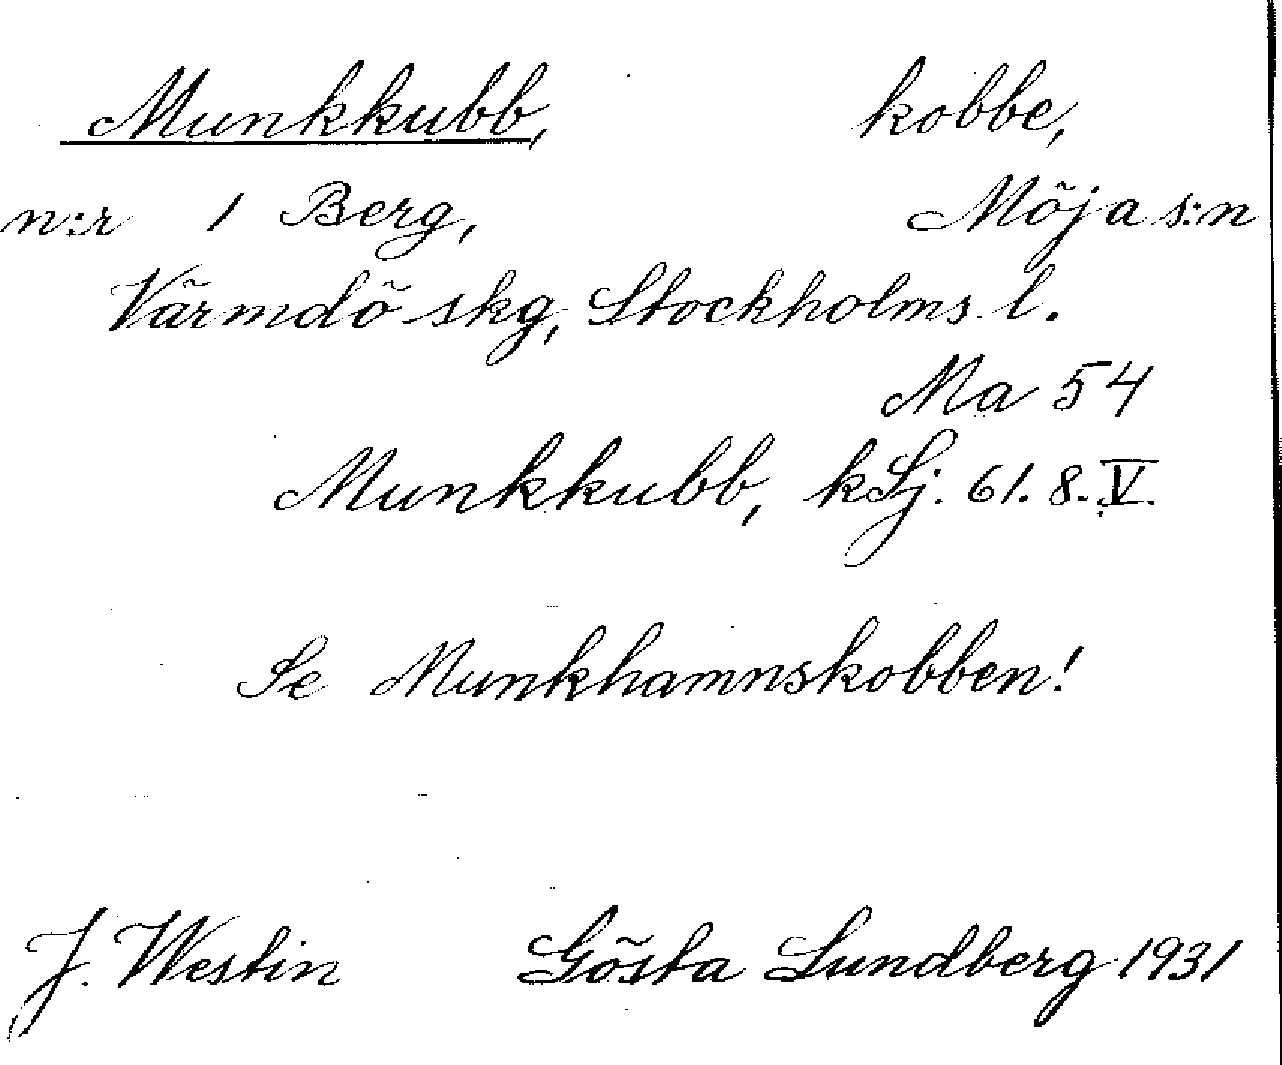 Munkkubb, kobbe,
n:r 1 Berg, Möja s:n
Värmdö skg, Stockholms l.
Ma 54
Munkkubb, k Lj. 61. 8. V.
Se Munkhamnskobben!
J. Westin Gösta Lundberg 1931